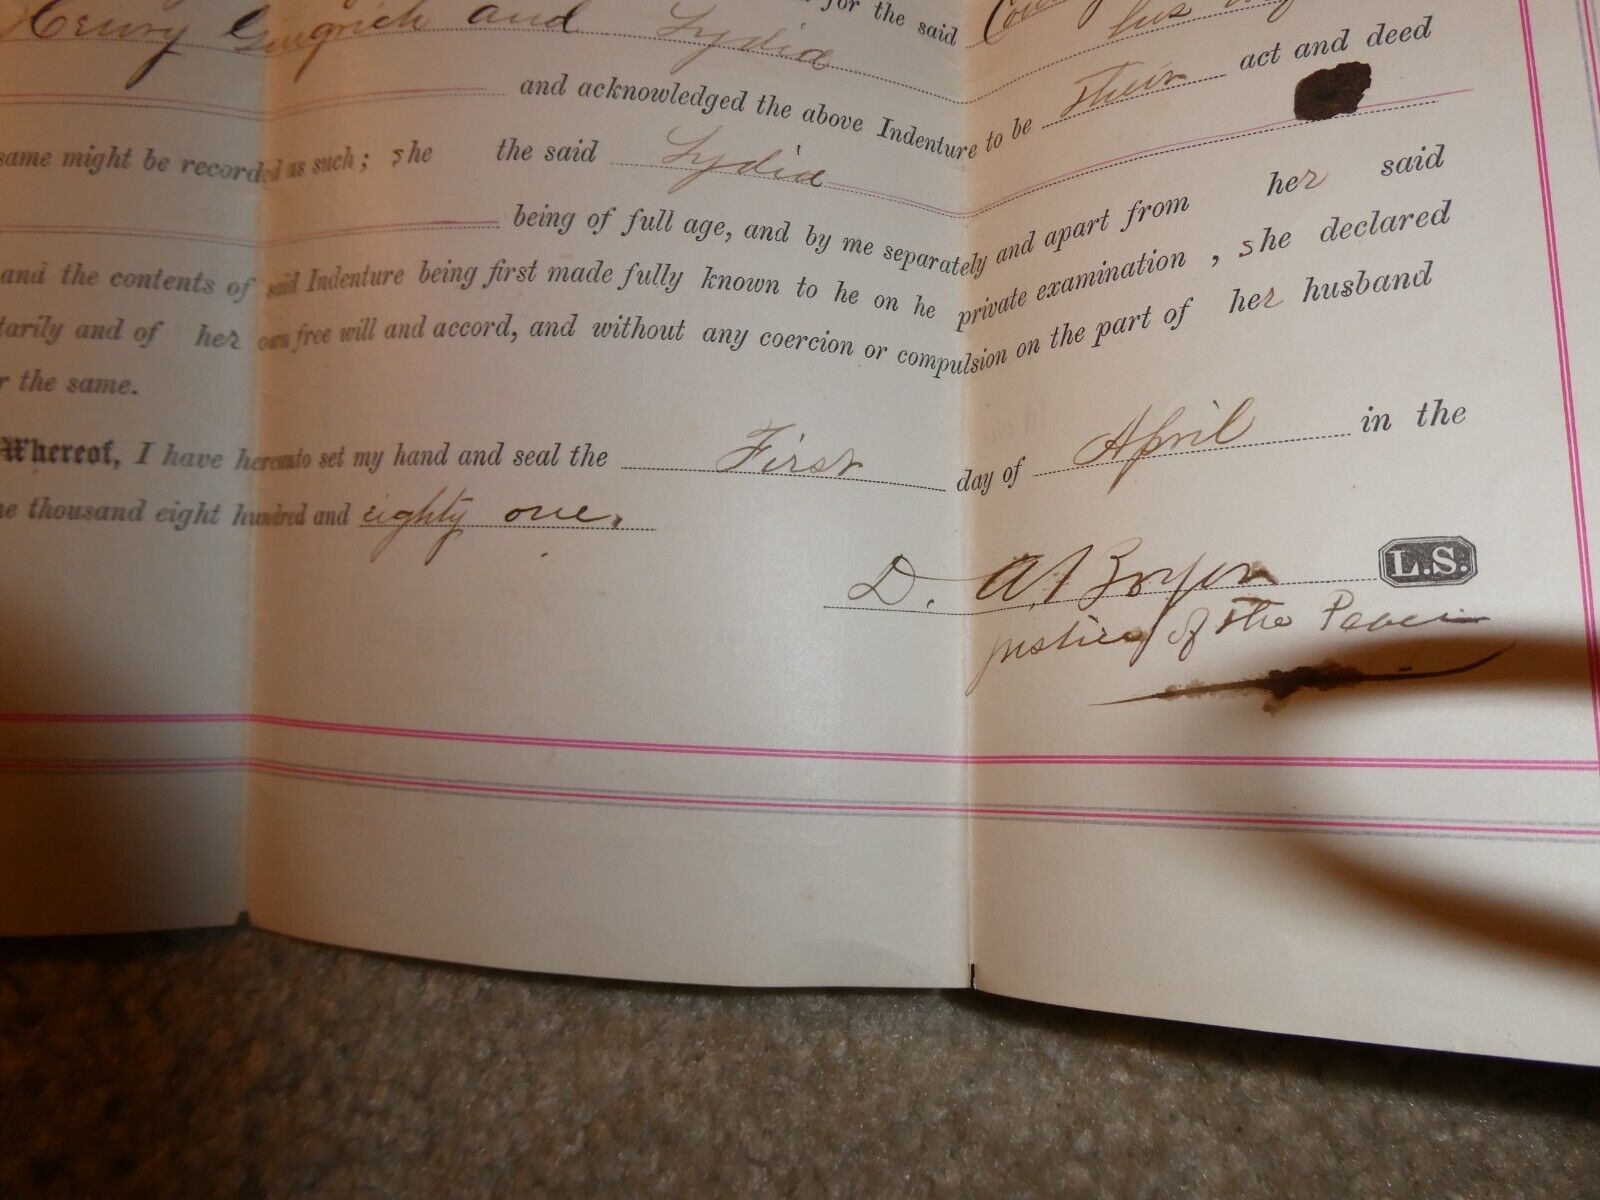 for the said
Henry Gingrich and Lydia his
and acknowledged the above Indenture to be their act and deed
same might be recorded as such; she the said Lydia
being of full age, and by me separately and apart from her said
and the contents of said Indenture being first made fully known to he on he private examination, she declared
tarily and of her own free will and accord, and without any coercion or compulsion on the part of her husband
r the same.
Whereof, I have hereunto set my hand and seal the First day of April in the
ne thousand eight hundred and eighty one.
D. A. L.S.
Justice of the Peace